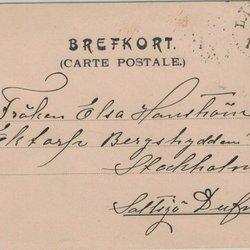 BREFKORT.
(CARTE POSTALE.)
Fröken Elsa
Ektorp Bergshyddan
Stockholm
Saltsjö Duf